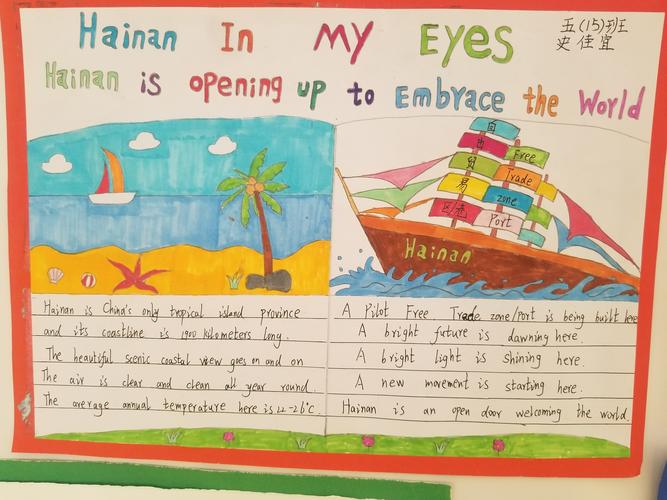 Hainan In My Eyes
五(15)班
史佳宜
Hainan is opening up to Embrace the World
自
由
贸
易
区/港
Free
Trade
zone
Port
Hainan
Hainan is China's only tropical island province
and its coastline is 1900 kilometers long.
The beautiful scenic coastal view goes on and on
The air is clear and clean all year round.
The average annual temperature here is 22-26℃.
A Pilot Free Trade zone/port is being built here
A bright future is dawning here.
A bright light is shining here.
A new movement is starting here.
Hainan is an open door welcoming the world.